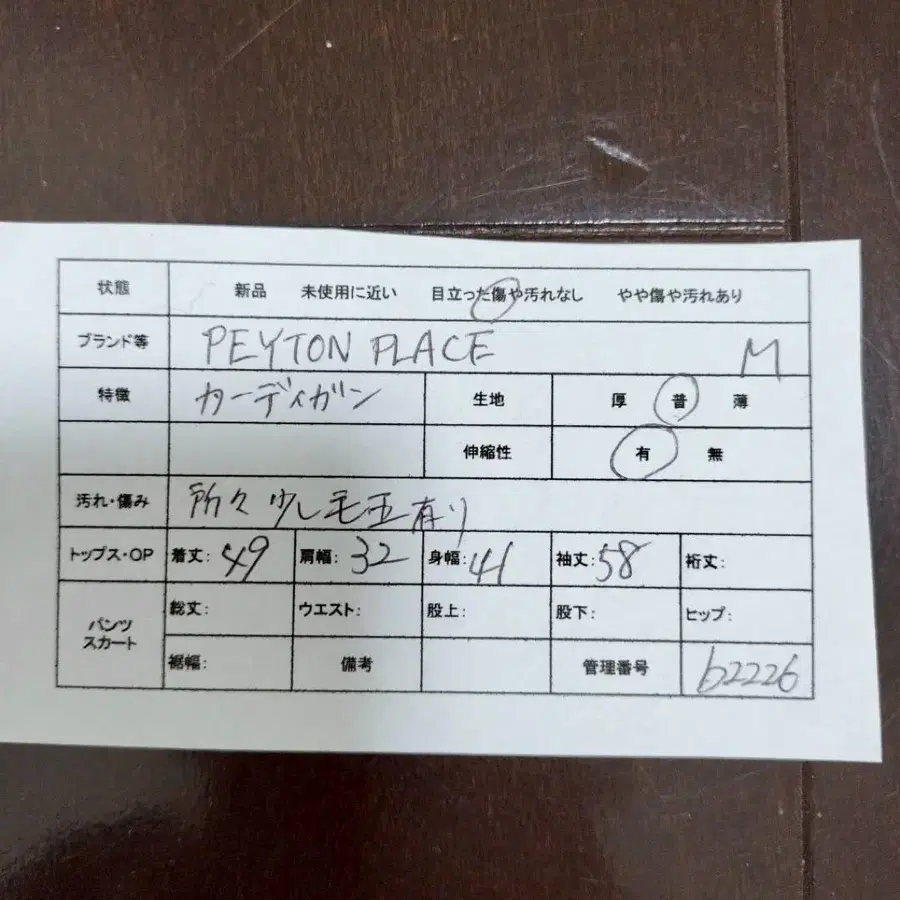 状態 新品 未使用に近い 目立った傷や汚れなし やや傷や汚れあり
ブランド等 PEYTON PLACE M
特徴 カーディガン 生地 厚 普 薄
伸縮性 有 無
汚れ・傷み 所々少し毛玉有り
トップス・OP 着丈: 49 肩幅: 32 身幅: 41 袖丈: 58 裄丈:
パンツ スカート 総丈: ウエスト: 股上: 股下: ヒップ:
裾幅: 備考 管理番号 b2226